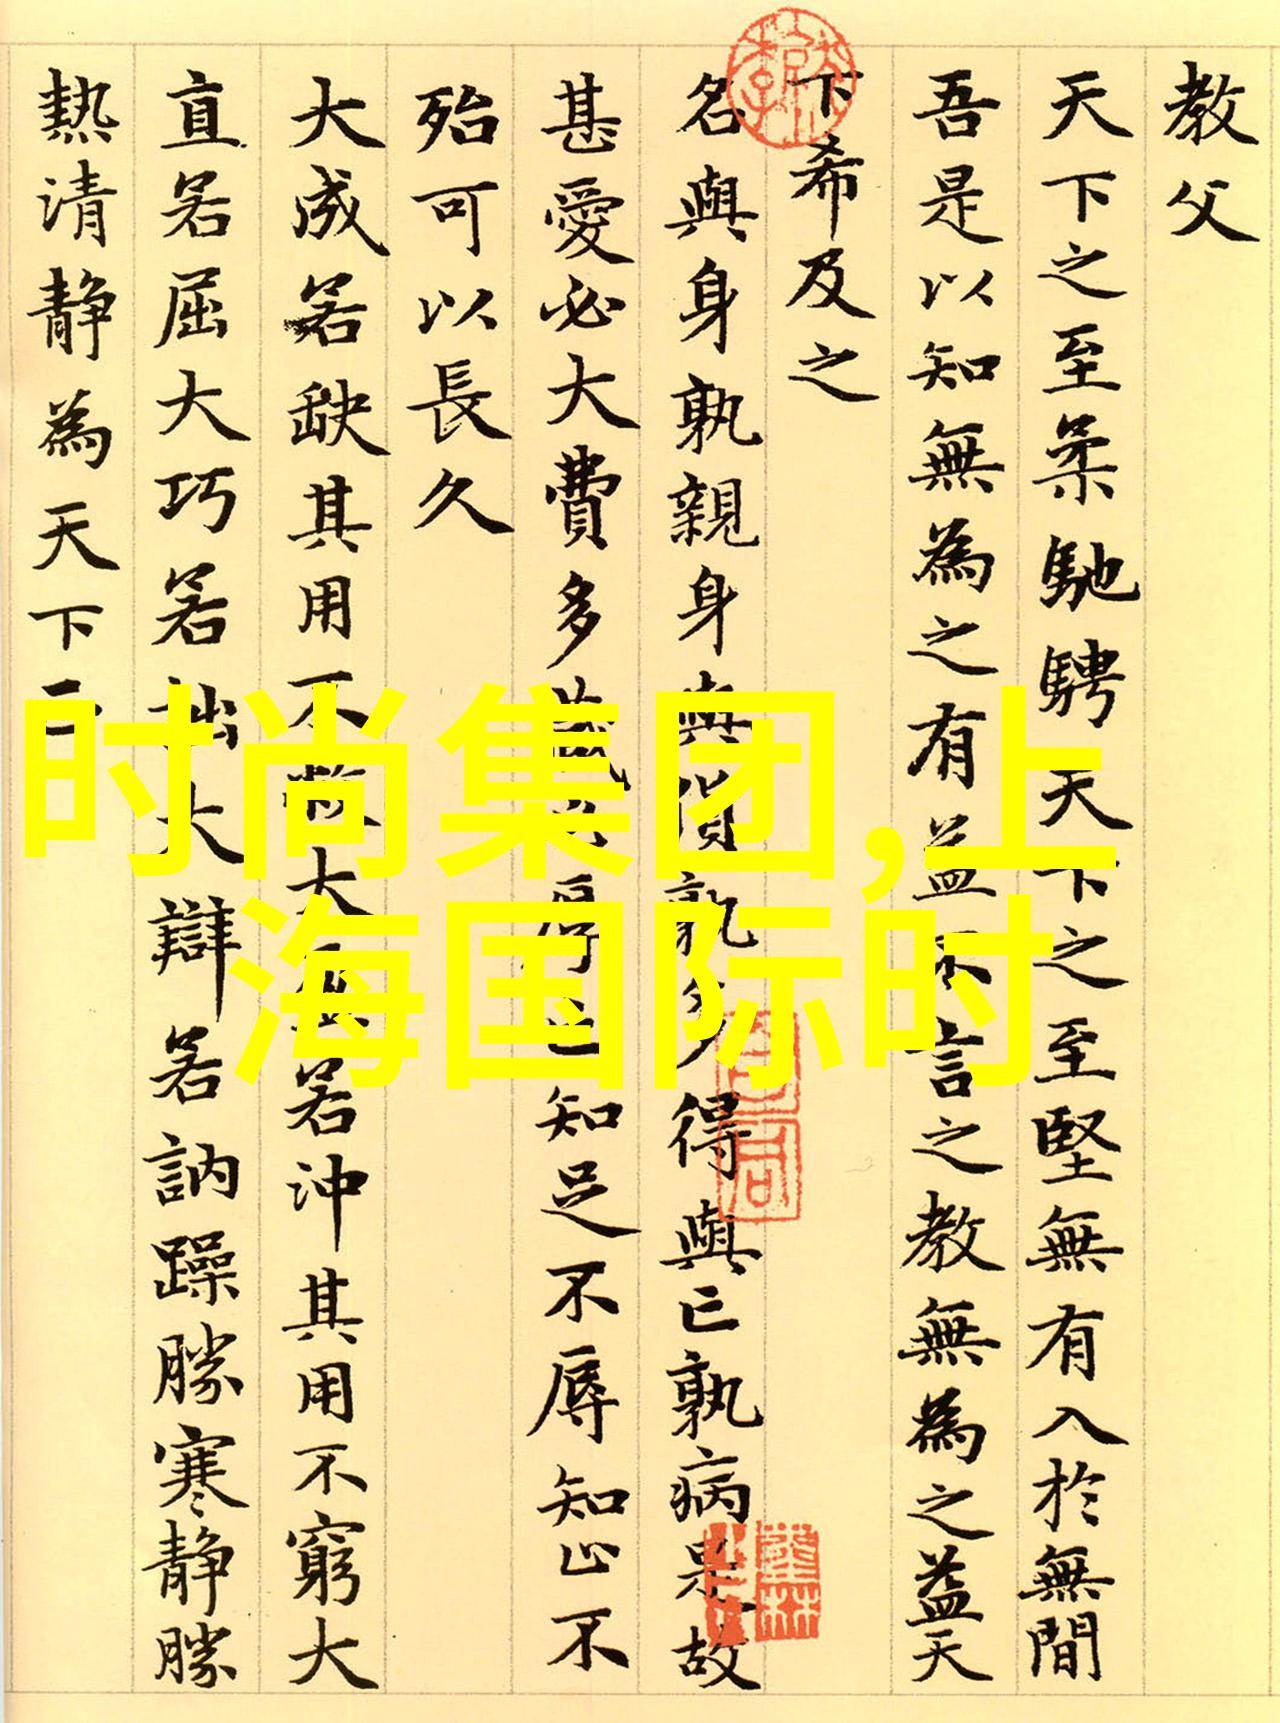 教父
天下之至柔馳騁天下之至堅無有入於無間
吾是以知無為之有益不言之教無為之益天
下希及之
名與身孰親身與貨孰多得與亡孰病是故
甚愛必大費多藏必厚亡知足不辱知止不
殆可以長久
大成若缺其用不敝大盈若沖其用不窮大
直若屈大巧若拙大辯若訥躁勝寒靜勝
熱清靜為天下正
时尚集团,上
海国际时